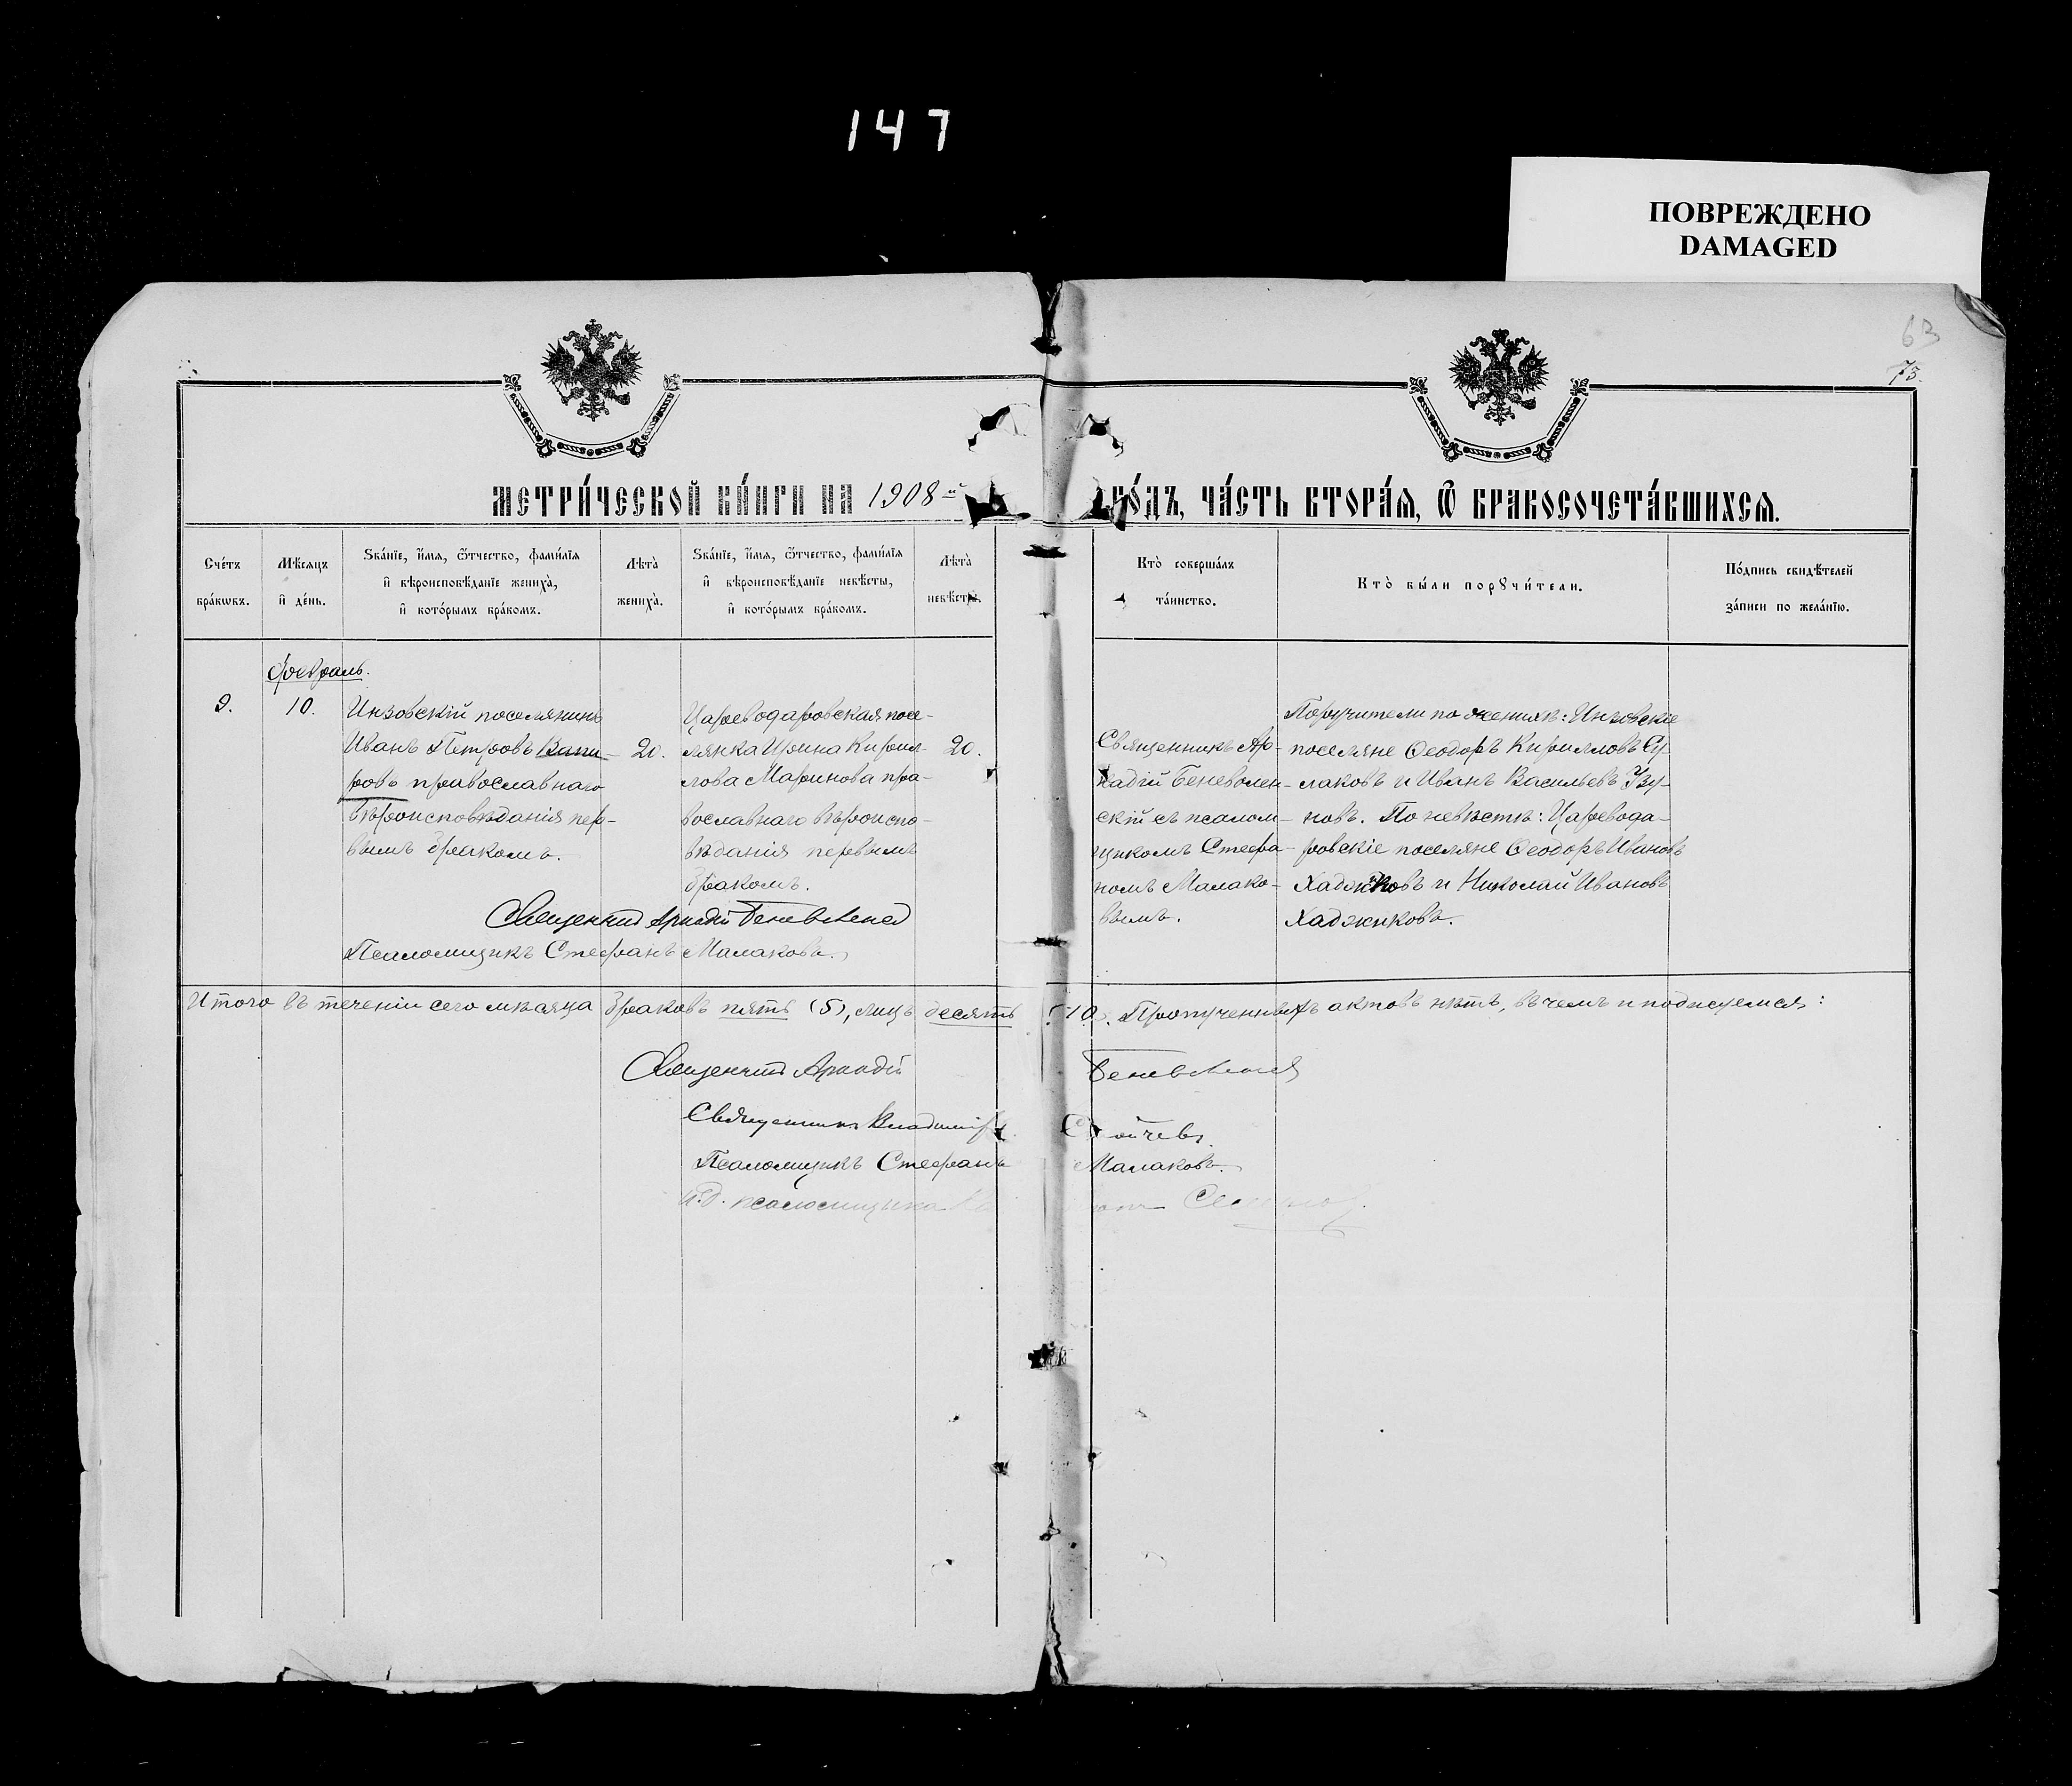 147
ПОВРЕЖДЕНО
DAMAGED
63
75.
МЕТРИ́ЧЕСКОЙ КНИ́ГИ НА 1908 й
ГО́ДЪ, ЧА́СТЬ ВТОРА́Я, Ѽ БРАКОСОЧЕТА́ВШИХСЯ.
Сче́тъ
бра́кѡвъ.
Мѣ́сяцъ
и҆ де́нь.
Ѕва́нїе, и҆́мя, ѻ҆́тчество, фами́лїя
и҆ вѣроисповѣ́данїе жениха̀,
и҆ кото́рымъ бра́комъ.
Лѣта̀
жениха̀.
Ѕва́нїе, и҆́мя, ѻ҆́тчество, фами́лїя
и҆ вѣроисповѣ́данїе невѣ́сты,
и҆ кото́рымъ бра́комъ.
Лѣта̀
невѣ́сты.
Кто̀ соверша́лъ
та́инство.
Кто̀ бы́ли порꙋчи́тели.
По́дпись свидѣ́телей
за́писи по жела́нїю.
Февраль.
9.
10.
Инзовскій поселянинъ
Иванъ Петровъ Капи-
ровъ православнаго
вѣроисповѣданія пер-
вымъ бракомъ.
20.
Цареводаровская посе-
лянка Ирина Кирил-
лова Маринова пра-
вославнаго вѣроиспо-
вѣданія первымъ
бракомъ.
20.
Священникъ Ар-
кадій Беневолен-
скій съ псалом-
щикомъ Стефа-
номъ Малако-
вымъ.
Поручители по женихѣ: Инзовскіе
поселяне Ѳеодоръ Кирилловъ Су-
лаковъ и Иванъ Васильевъ Узу-
новъ. По невѣстѣ: Царевода-
ровскіе поселяне Ѳеодоръ Ивановъ
Хаджиковъ и Николай Ивановъ
Хаджиковъ.
Священникъ Аркадій Беневоленскій
Псаломщикъ Стефанъ Малаковъ.
Итого въ теченіи сего мѣсяца браковъ пять (5), лицъ десять (10). Пропущенныхъ актовъ нѣтъ, въ чемъ и подписуемся:
Священникъ Аркадій Беневоленскій
Священникъ Владиміръ
Псаломщикъ Стефанъ Малаковъ.
И. д. псаломщика